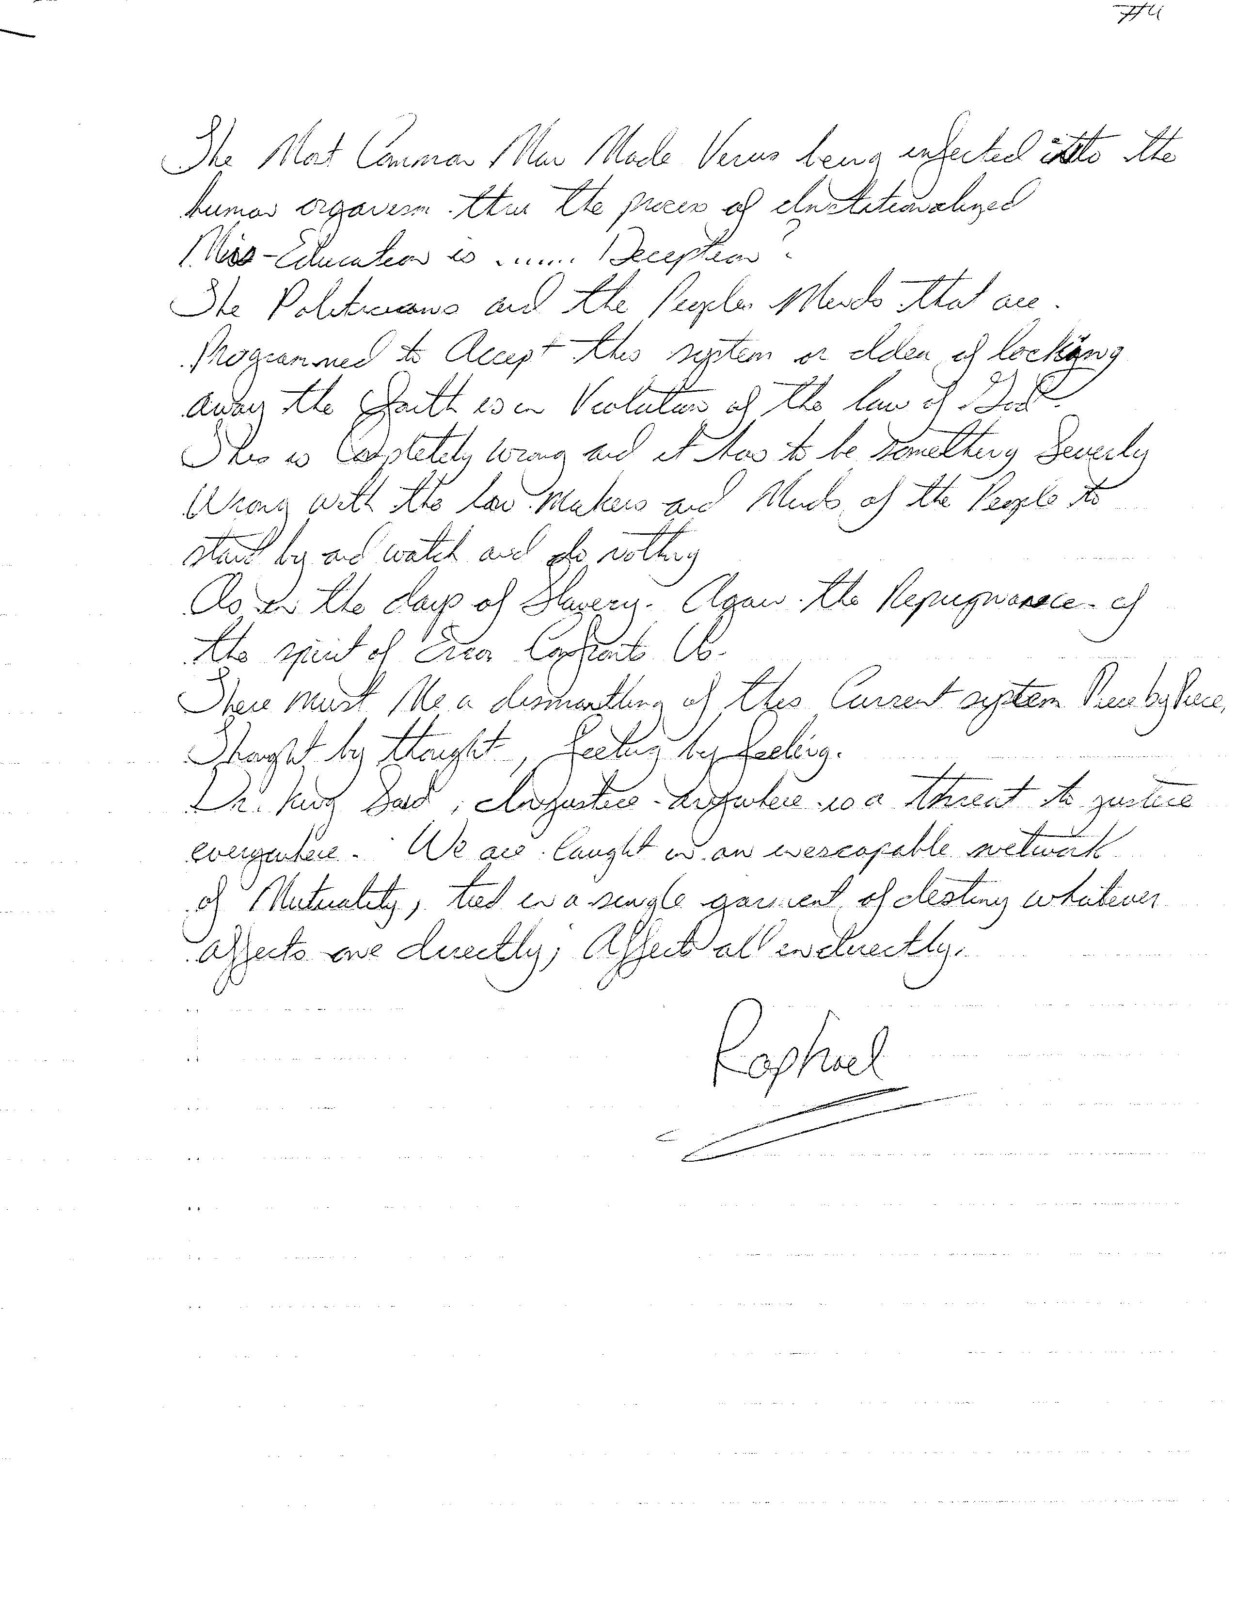 #4
The Most Common Man Made Verus being enfected into the
human organism thru the process of Institutionalized
Miss-Education is ....... Deception?
The Politicians and the Peoples Minds that are.
Programmed to Accept this system or Idea of locking
away the is in Violation of the law of God.
This is Completely wrong and it has to be something Severly
Wrong with the law Makers and Minds of the People to
stand by and watch and do nothing
As in the days of Slavery. Again the Repugnance of
the spirit of Error Confronts Us.
There must be a dismantling of this Current system Piece by Piece,
Thought by thought, feeling by feeling.
Dr. King Said, Injustice anywhere is a threat to justice
everywhere. We are Caught in an inescapable network
of Mutuality, tied in a single garment of destiny whatever
affects one directly; Affects all indirectly.
Raphael